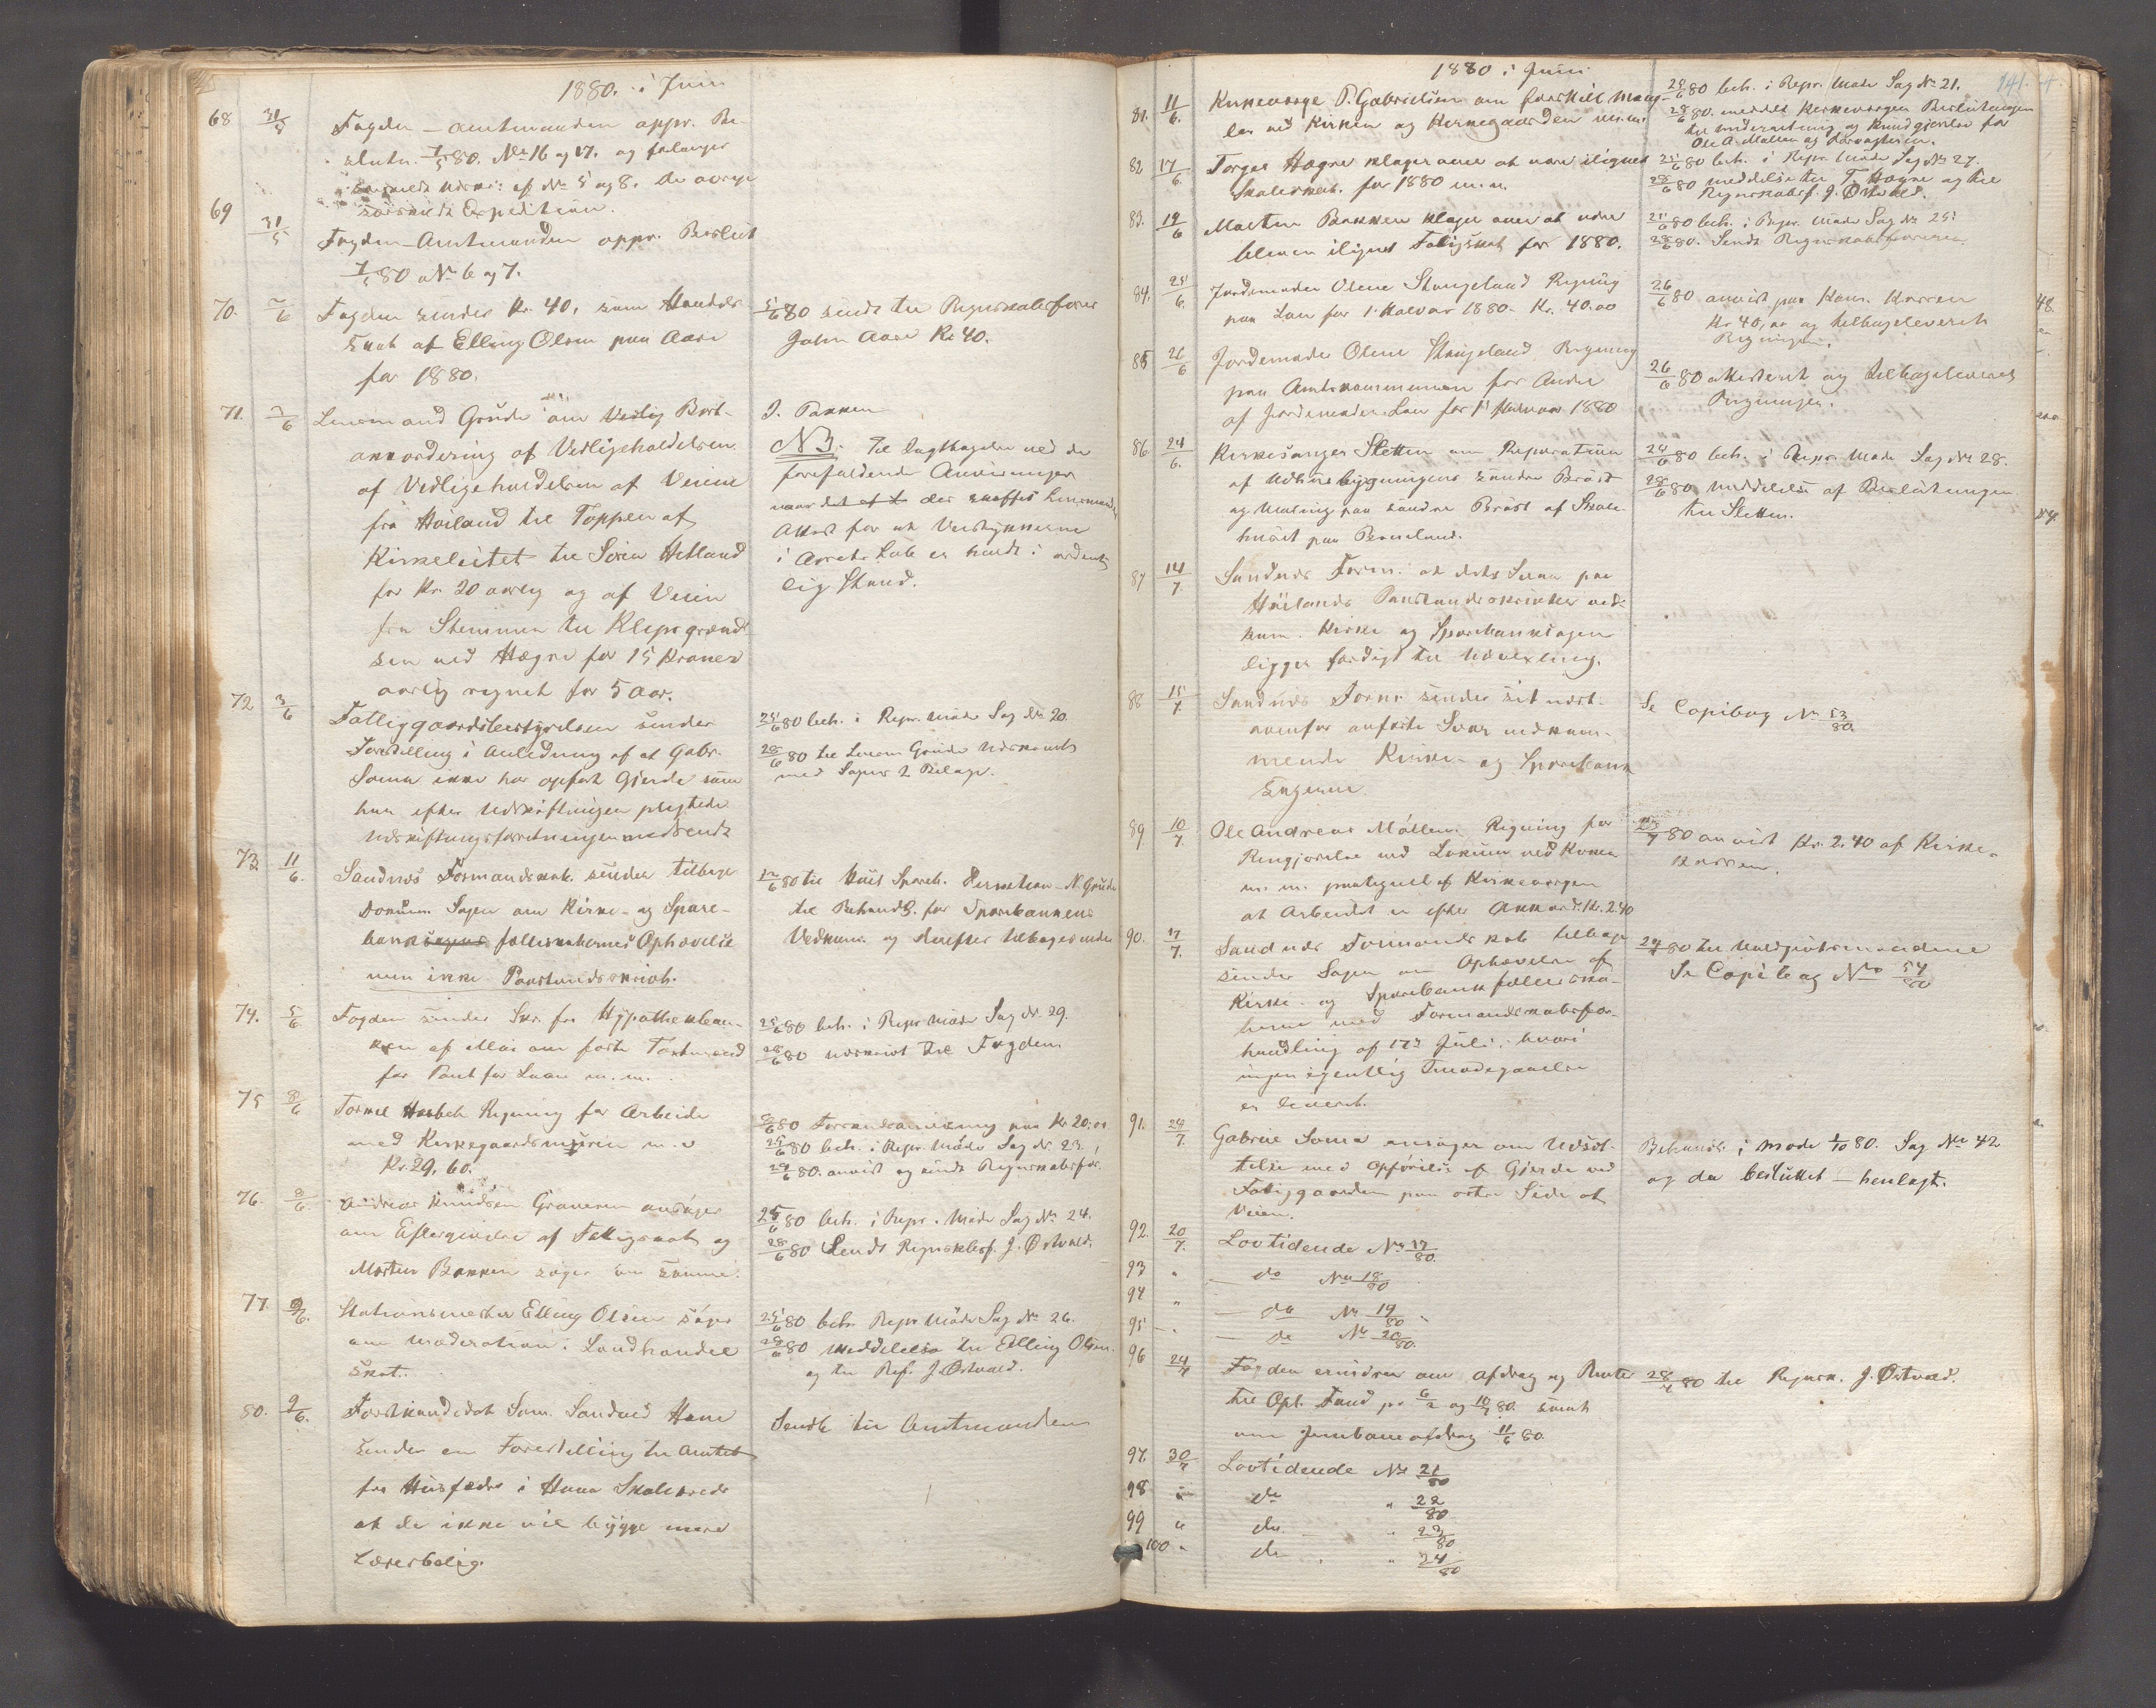 1880. i Juni
68 31/5 Fogden – Amtmanden appr. Be-
slutn. 7/5 80. No 16 og 17. og forlanger
Udskr. af No 5 og 8. De øvrige
særskilt Expedition.
69 31/5 Fogden – Amtmanden appr. Beslut
7/5 80 No 6 og 7.
70. 2/6 Fogden sender Kr. 40, som Handels
skat af Elling Olsen paa Aase
for 1880.
5/6 80 sendt til Regnskabsfører
John Aase Kr 40.
71. 2/6 Lensmand Grude om Bort-
akkordering af Vedligeholdelsen
af Vedligeholdelsen af Veien
fra Høiland til Toppen af
Kirkeleitet til Søren Hetland
for Kr. 20 aarlig og af Veien
fra Stemmen til Klepsgrænd
sen ved Hægre for 15 Kroner
aarlig regnet for 5 Aar.
J. Pakken
NB. Til Iagttagelse ved de
forefaldende Anvisninger
naar der skaffes Lensmandens
Attest for at Veistykkerne
i Aarets Løb er holdt i ordent
lig Stand.
72 3/6 Fattiggaardsbestyrelsen sender
Forestilling i Anledning af at Gabr.
Soma ikke har opført Gjerde som
han efter Udskiftningen pligtede
Udskiftningsforretningen medsendt
25/6 80 beh. i Repr. Møde Sag No 20.
28/6 80 til Lensm Grude Udskrift
med Sagens 2 Bilage.
73. 11/6. Sandnes Formandskab. sender tilbage
Dokum. Sagen om Kirke- og Spare-
bank fællesskabernes Ophævelse
men ikke Paastandsskrift.
12/6 80 til N. Grude
til Behandl. for Sparebankens
Vedkom. og derefter tilbagesendes
74. 5/6 Fogden sender Skr. fra Hypothekban-
ken af Mai om første
for Pant for Laan m. m.
25/6 80 beh. i Repr Møde Sag No. 29.
28/6 80 Udskrift til Fogden
75 8/6 Torkel Regning for Arbeide
med Kirkegaardsmuren m. v
Kr. 29. 60.
8/6 80 Forskudsanvisning paa Kr 20.00
25/6 80 beh. i Repr. Møde Sag No. 23.
29/6 80. anvist og sendt Regnskabsfør.
76. 8/6. Andreas Knudsen Graveren ansøger
om Eftergivelse af Fattigskat og
Morten Bakken søger om samme.
25/6 80 beh. i Repr. Møde Sag No. 24.
28/6 80 Sendt Regnskbsf. J. Østvold.
77. 9/6. Stationsmester Elling Olsen søger
om Moderation i Landhandel
skat.
25/6 80 beh. Repr Møde Sag No. 26.
28/6 80 Meddelelse til Elling Olsen
og til Rgf. J. Østvold.
80. 9/6. Forstkandidat Sam. Sandved Hana
sender en Forestilling til Amtet
fra Husfædre i Hana Skolekreds
at de ikke vil bygge mere
Lærerbolig.
Sendt til Amtmanden
1880 i Juni
141.
81. 11/6. Kirkeværge P. Gabrielsen om forskjell. Mang-
ler ved Kirken og Kirkegaarden m. m.
25/6 80 beh. i Repr. Møde Sag No 21.
28/6 80. meddelt Kirkeværgen Beslutningen
til Underretning og Kundgjørelse for
Ole A. Møllen og
82 17/6. Torger Hægre klager over at være ilignet
Skoleskat. for 1880 m. m.
25/6 80 beh. i Repr. Møde Sag No 27.
28/6 80 meddelse til T. Hægre og til
Regnskabsf. J. Østvold.
83. 19/6 Morten Bakken klager over at være
bleven ilignet Fatigskat for 1880.
25/6 80 beh. i Repr. Møde Sag No 25
28/6 80. Sendt Regnskabsføreren
84. 25/6. Jordemoder Olene Stangeland Regning
paa Løn for 1. Halvaar 1880. Kr. 40.00
26/6 80 anvist paa Kom. Kassen
Kr 40,00 og tilbageleveret
Regningen.
85 26/6 Jordemoder Olene Stangeland Regning
paa Amtskommunen for Andel
af Jordemoder Løn for 1 Halvaar 1880
26/6 80 attesteret og tilbageleveret
Regningen.
86. 24/6. Kirkesanger Sletten om Reparation
af Udhusbygningens søndre Brøst
og Maling paa søndre Brøst af Skole-
huset paa
24/6 80 beh. i Repr. Møde Sag No 28.
28/6 80 meddelse af Beslutningen
til Sletten.
87 14/7. Sandnes Form. at dets Svar paa
Høilands Paastandsskrifter ved-
kom. Kirke og Sparebanksagen
ligger færdigt til Udvexling.
88 15/7 Sandnes Form. sender sit næst-
ovenfor anførte Svar vedkom-
mende Kirke- og Sparebank
sagerne
Se Copibog No 53/80
89 10/7. Ole Andreas Møllen. Regning for
Rengjørelse ved Lokum ved Kirken
m. m. paategnet af Kirkeværgen
at Arbeidet er efter Akkord. Kr. 2.40
7 80 anvist Kr. 2.40 af Kirke-
kassen.
90. 17/7. Sandnes Formandskab tilbage
sender Sagen om Ophævelse af
Kirke- og Sparebankfællesska-
berne med Formandskabsfor-
handling af 17 Juli, hvori
ingen egentlig Imødegaaelse
er leveret.
29/7 80 til Voldgiftsmændene
Se Copibog No 54/80
91. 24/7. Gabriel Soma ansøger om Udsæt-
telse med Opførelse af Gjerde ved
Fatiggaarden paa østre Side af
Veien.
Behandl. i Møde 1/10 80. Sag No 42
og da besluttet – henlagt.
92. 20/7. Lovtidende No 17/80.
93 " do No 18/80
94 " do No 19/80
95 – " – do No 20/80.
96 24/7 Fogden erindrer om Afdrag og Renter
til Opl. Fond pr 6/2 og 10/7 80. samt
om Jernbaneafdrag 11/6 80.
28/7 80 til Regnsk. J. Østvold.
97. 30/7 Lovtidende No 21/80
98 " do " 22/80
99 " do. " 23/80
100 " do " 24/80